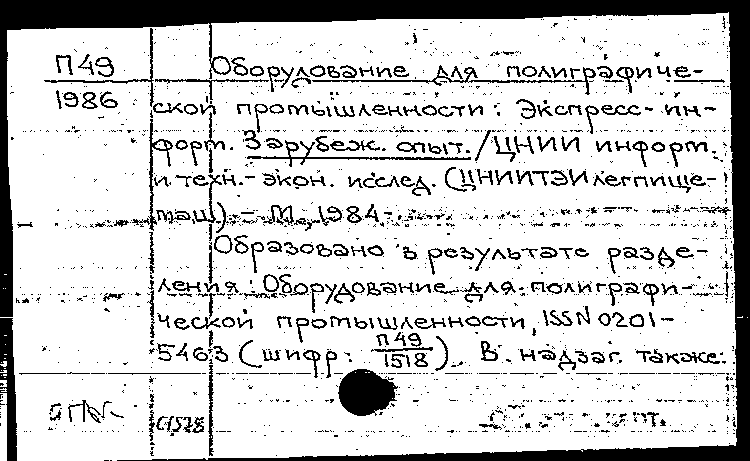 П49
1986
Оборудование для полиграфиче-
ской промышленности: Экспресс-ин-
форм. Зарубеж. опыт. / ЦНИИ информ.
и техн.-экон. исслед. (ЦНИИТЭИлегпище-
маш). – М., 1984-.
Образовано в результате разде-
ления: Оборудование для полиграфи-
ческой промышленности, ISSN 0201-
5463 (шифр: П49/1518). В надзаг. также:
С1528